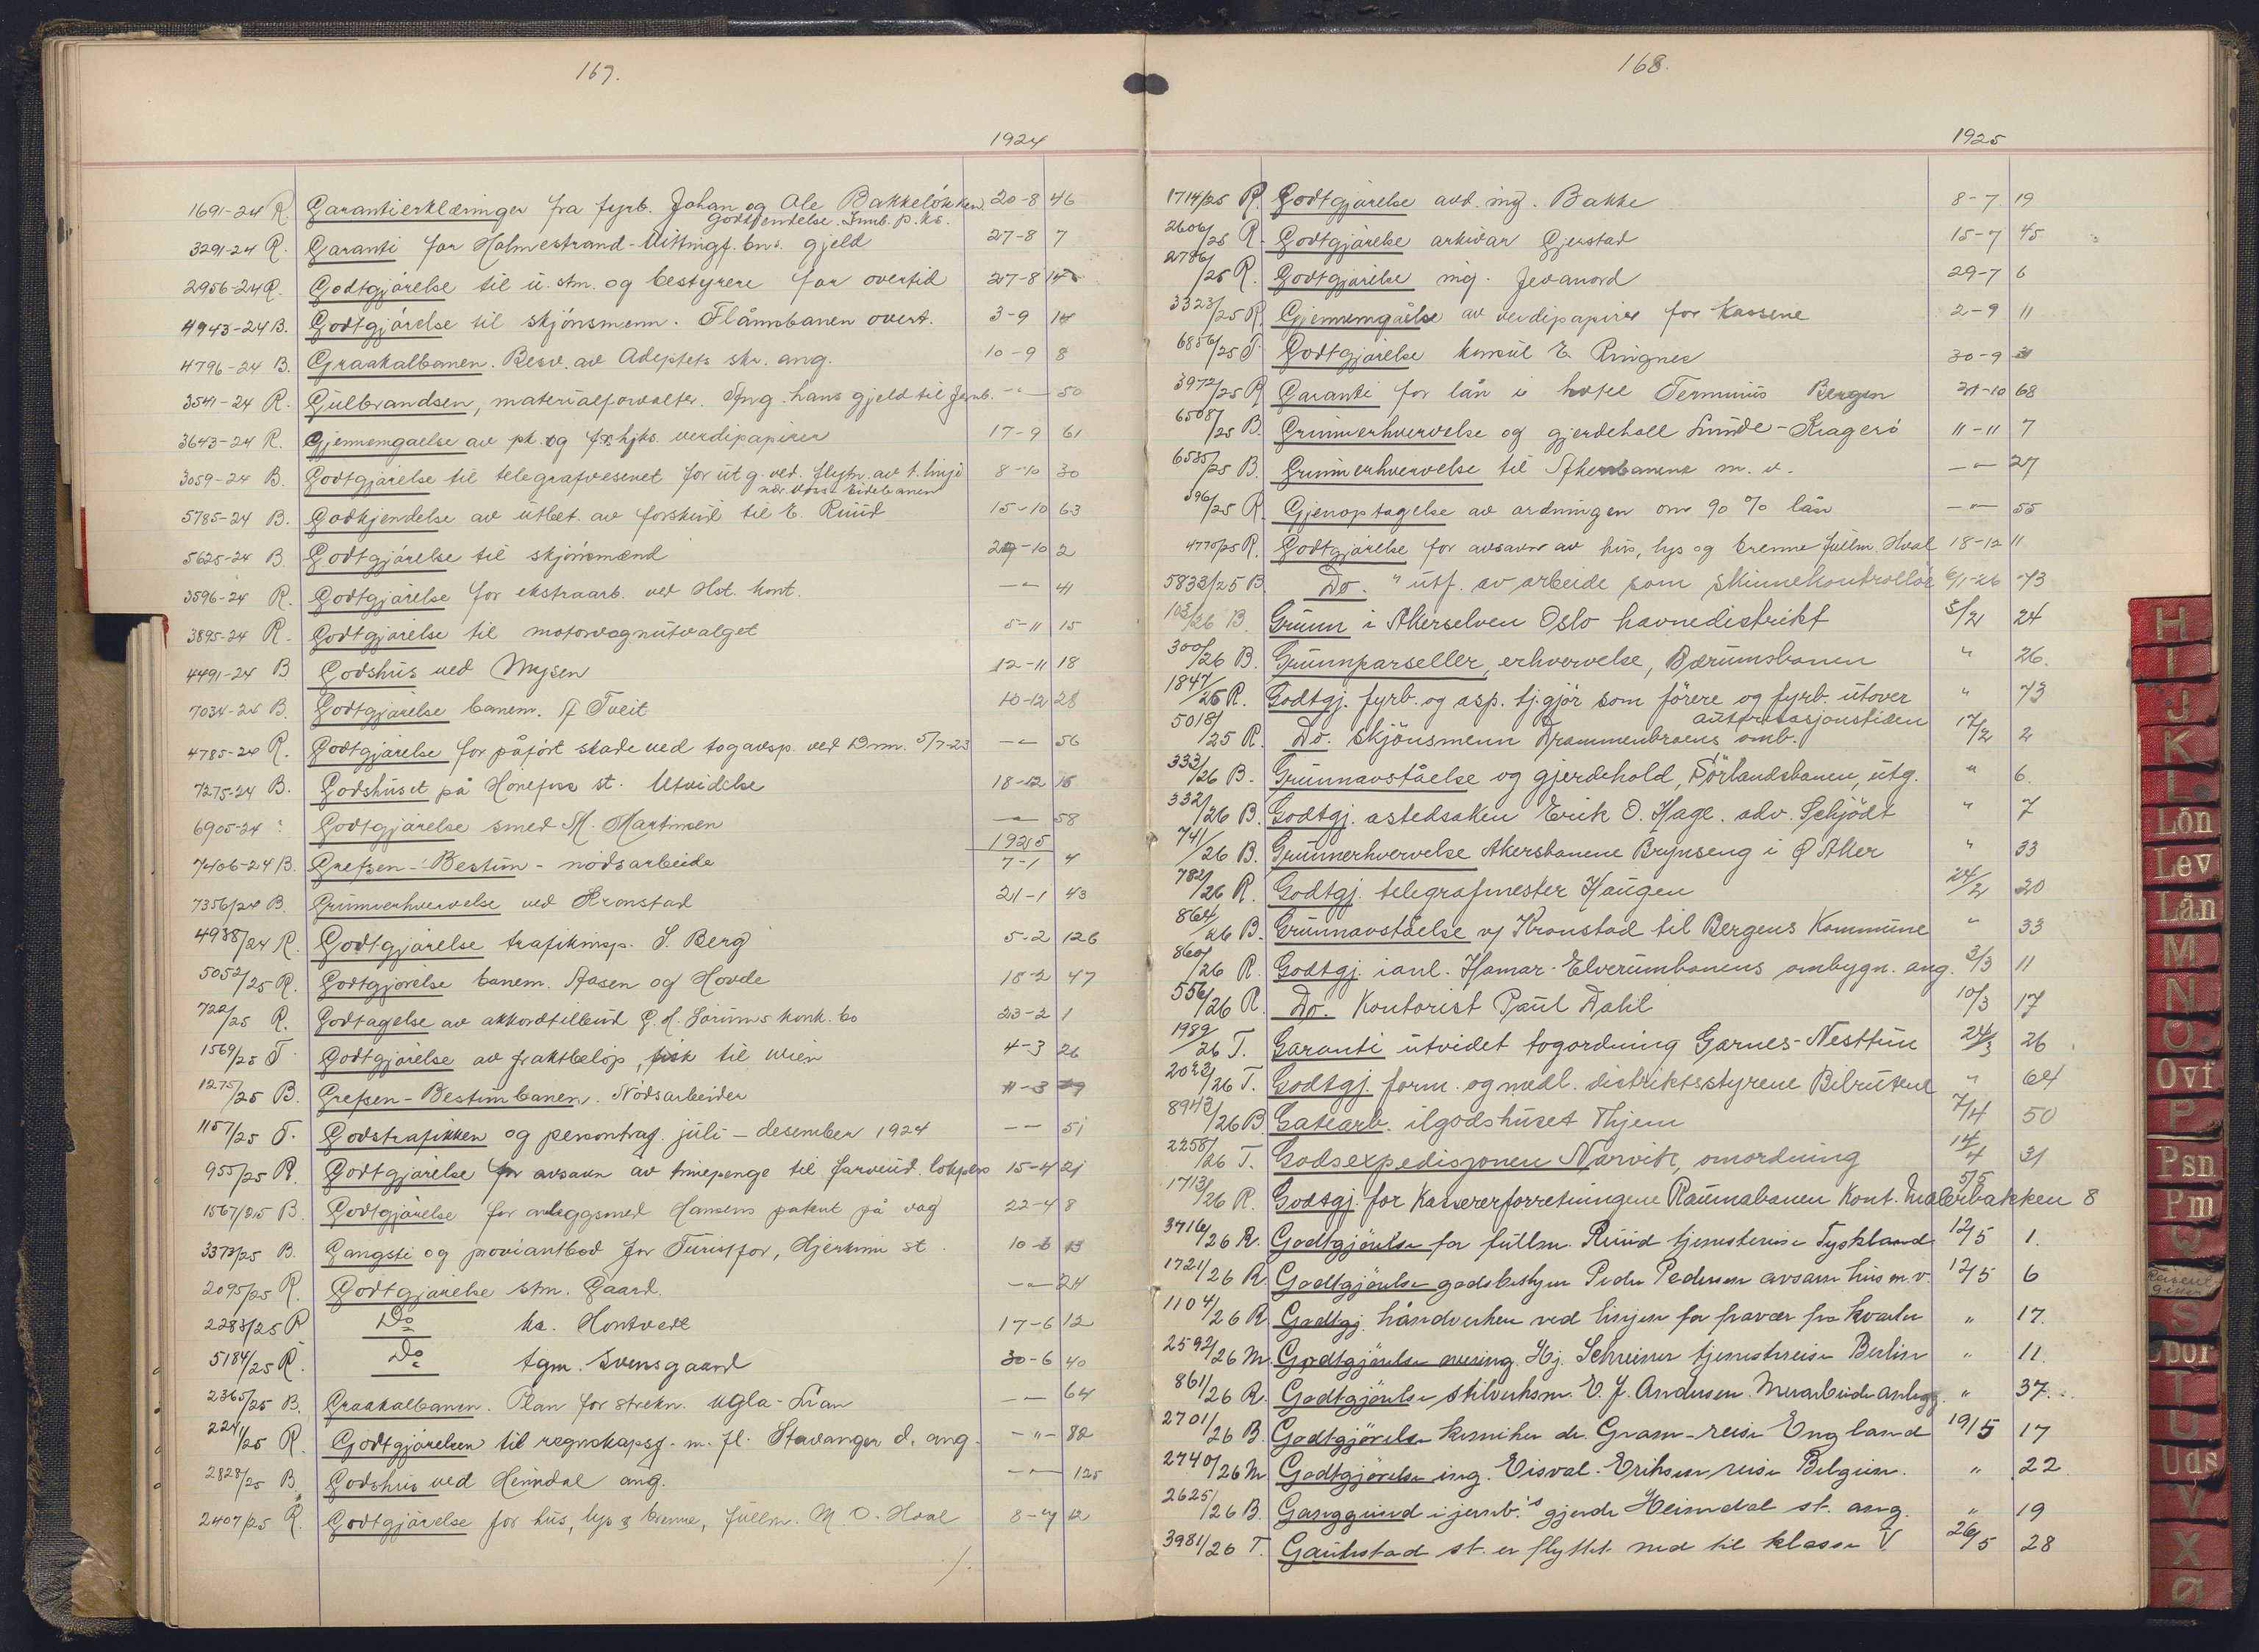 167.
1924
1691-24 R. Garantierklæringer fra fyrb. Johan og Ole Bakkeløkken. 20-8 46
godkjendelse. Innb. p. ks.
3291-24 R. Garanti for Holmestrand-Vittingf. bns. gjeld 27-8 7
2956-24 R. Godtgjørelse til u. stm. og bestyrere for overtid 27-8 14
4943-24 B. Godtgjørelse til skjønsmenn. Flåmsbanen overt. 3-9 14
4796-24 B. Graakalbanen. Besv. av Adeptets skr. ang. 10-9 8
3541-24 R. Gulbrandsen, materialforvalter. Ang. hans gjeld til Jernb. -"- 50
3643-24 R. Gjennemgaelse av pk. og fs. hjks. verdipapirer 17-9 61
3059-24 B. Godtgjørelse til telegrafvesenet for utg. ved. flytn. av t. linje 8-10 30
ndr. Voss-Eidebanen
5785-24 B. Godkjendelse av utbet. av forskud til E. Ruud 15-10 63
5625-24 B. Godtgjørelse til skjønsmænd 29-10 2
3596-24 R. Godtgjørelse for ekstraarb. ved Hst. kont. -"- 41
3895-24 R. Godtgjørelse til motorvognutvalget 5-11 15
4491-24 B Godshus ved Mysen 12-11 18
7034-24 B. Godtgjørelse banem. A Tveit 10-12 28
4785-24 R. Godtgjørelse for påført skade ved togavsp. ved Drm. 5/7-23 -"- 56
7275-24 B. Godshuset på Hønefoss st. Utvidelse 18-12 18
6905-24 " Godtgjørelse smed M. Martinsen -"- 58
1925
7406-24 B. Grefsen-Bestun-nødsarbeide 7-1 4
7356/24 B. Grunnerhvervelse ved Kronstad 21-1 43
4938/24 R. Godtgjørelse trafikinsp. S. Berg 5-2 126
5052/25 R. Godtgjørelse banem. Aasen og Hovde 18-2 47
722/25 R. Godtagelse av akkordtilbud G. H. Sørums konk. bo 23-2 1
1569/25 T. Godtgjørelse av fraktbeløp, fisk til Wien 4-3 26
1275/25 B. Grefsen-Bestumbanen. Nødsarbeider 11-3 29
1157/25 T. Godstrafikken og persontraf. juli - desember 1924 -- 51
955/25 R. Godtgjørelse for avsavn av timepenge til forv.  15-4 21
1567/25 B Godtgjørelse for anleggsmed Hansens patent på vag 22-4 8
3373/25 B. Gangsti og proviantbod for Turistfor, Hjerkinn st. 10-6 13
2095/25 R. Godtgjørelse stm. Gaard. -"- 24
2283/25 R Do ks. Hontvedt 17-6 12
5184/25 R. Do tgm. Svensgaard 30-6 40
2365/25 B. Graakalbanen. Plan for strekn. Ugla-Lian -"- 64
2241/25 R. Godtgjørelsen til regnskapsf. m. fl. Stavanger d. ang. -"- 82
2828/25 B. Godshus ved Heimdal ang. -"- 125
2407/25 R. Godtgjørelse for hus, lys & brenne, fullm. M O. Hval 8-7 12
./.
168.
1925
1714/25 R. Godtgjørelse avd. ing. Bakke 8-7 19
2606/25 R. Godtgjørelse arkivar Gjerstad 15-7 45
2786/25 R. Godtgjørelse ing. Jevanord 29-7 6
3323/25 R. Gjennemgåelse av verdipapirer for kassene 2-9 11
6856/25 T. Godtgjørelse konsul E. Ringnes 30-9 31
3972/25 R Garanti for lån i hotel Terminus Bergen 21-10 68
6508/25 B. Grunnerhvervelse og gjerdehold Lunde-Kragerø 11-11 7
6585/25 B. Grunnerhvervelse til Akersbanene m. v. -"- 27
596/25 R. Gjenoptagelse av ordningen om 90 % lån -"- 55
4770/25 R. Godtgjørelse for avsavn av hus, lys og brenne fullm. Hval 18-12 11
5833/25 B. Do. " utf. av arbeide som skinnekontrollør 6/1-26 73
103/26 B. Grunn i Akerselven Oslo havnedistrikt 3/2 24
300/26 B. Grunnparseller, erhvervelse, Bærumsbanen " 26.
1847/26 R. Godtgj. fyrb. og asp. tj.gjør som førere og fyrb. utover " 73
autorisasjonstiden
5018/25 R. Do. skjønsmenn Drammenbroens omb. 17/2 2
333/26 B. Grunnavståelse og gjerdehold, Sørlandsbanen, utg. " 6.
332/26 B. Godtgj. astedsaken Erik O. Hage. adv. Schjødt " 7
741/26 B. Grunnerhvervelse Akersbanene Brynseng i Ø Aker " 33
782/26 R. Godtgj. telegrafmester Haugen 24/2 20
864/26 B. Grunnavståelse v/ Kronstad til Bergens Kommune " 33
860/26 R. Godtgj. ianl. Hamar-Elverumbanens ombygn. ang. 3/3 11
556/26 R. Do. Kontorist Paul Dahl 10/3 17
1989/26 T. Garanti utvidet togordning Garnes-Nesttun 24/3 26
2023/26 T. Godtgj. form. og medl. distriktsstyrene Bilrutene " 64
8943/26 B. Gatearb. ilgodshuset Thjem 7/4 50
2258/26 T. Godsexpedisjonen Narvik, omordning 14/4 31
1713/26 R. Godtgj. for Kassererforretningene Raumabanen Kont. Malerbakken 5/5 8
3716/26 R. Godtgjørelse for fullm. Ruud tjenestereise Tyskland 12/5 1.
1721/26 R. Godtgjørelse godsbestyrer Peder Pedersen avsavn hus m. v. 12/5 6
1104/26 R Godtgj. håndverkere ved linjen for fravær fra kvarter " 17.
2592/26 M. Godtgjørelse overing. Hj. Schreiner tjenestereise Berlin " 11
861/26 R. Godtgjørelse stilverksm. E. J. Andersen. Merarbeide anlegg. " 37.
2701/26 B. Godtgjørelse kemiker dr. Gram-reise England 19/5 17
2740/26 M. Godtgjørelse ing. Eisval-Eriksen reise Belgien. " 22
2625/26 B. Ganggrind i jernb.'s gjerde Heimdal st. ang. " 19
3981/26 T. Gaustad st. er flyttet ned til klasse V 26/5 28
H
I
J
K
L
Lön
Lev
Lån
M
N
O
Ovf
P
Psn
Pm
Q
S
Spor
T
U
Uds
V
X
Ø